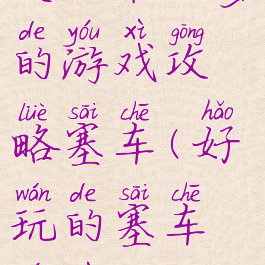 de yóu xì gōng
的游戏攻
lüè sāi chē hǎo
略塞车(好
wán de sāi chē
玩的塞车